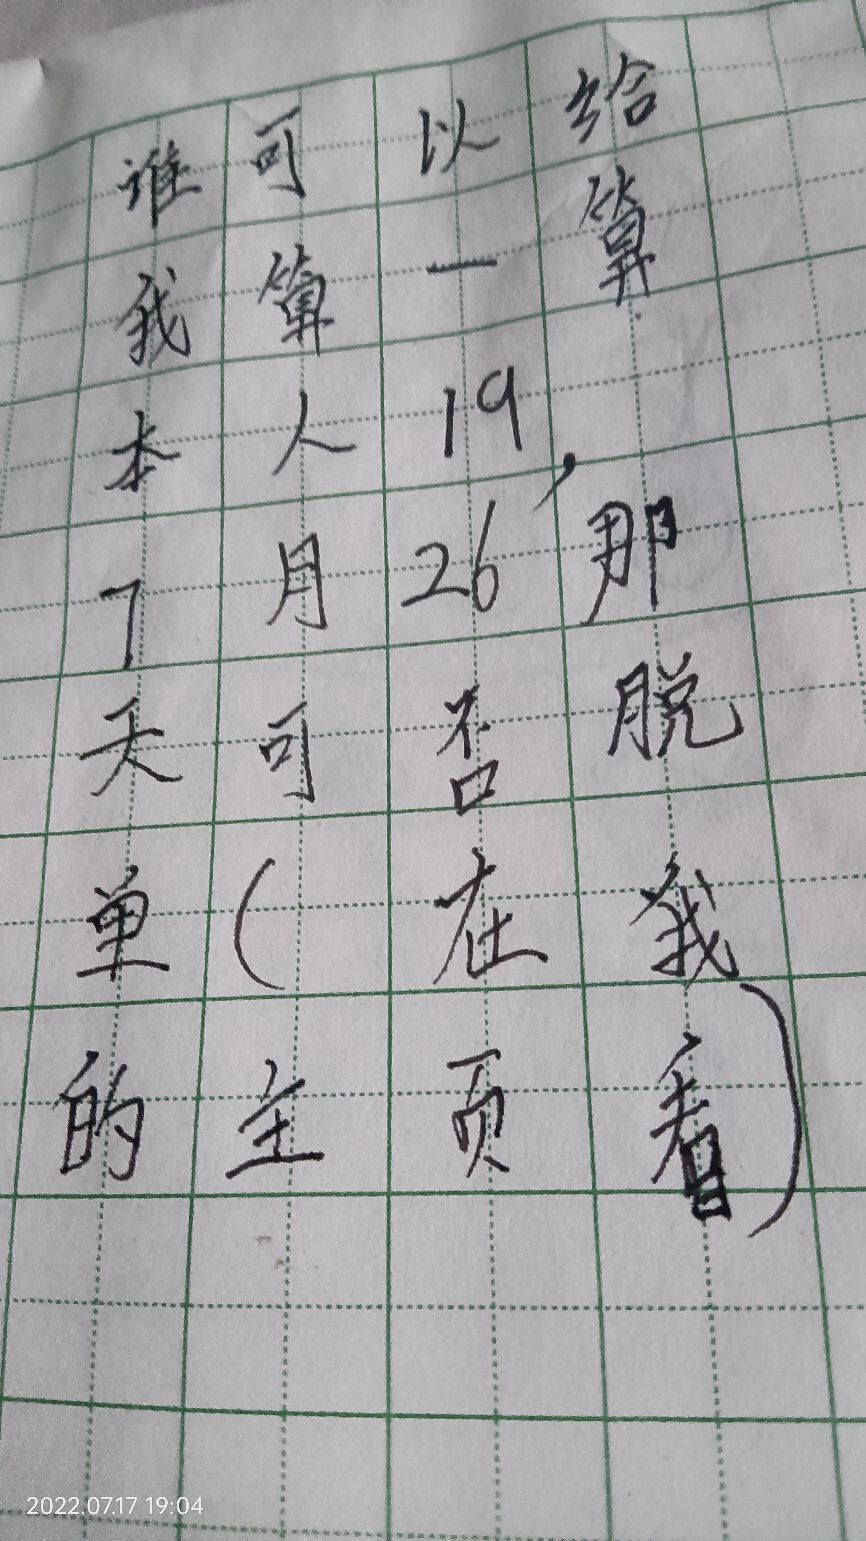 谁可以给
我算一算
本人19,
7月26那
天可否脱
单(在我
的主页看)
2022.07.17 19:04